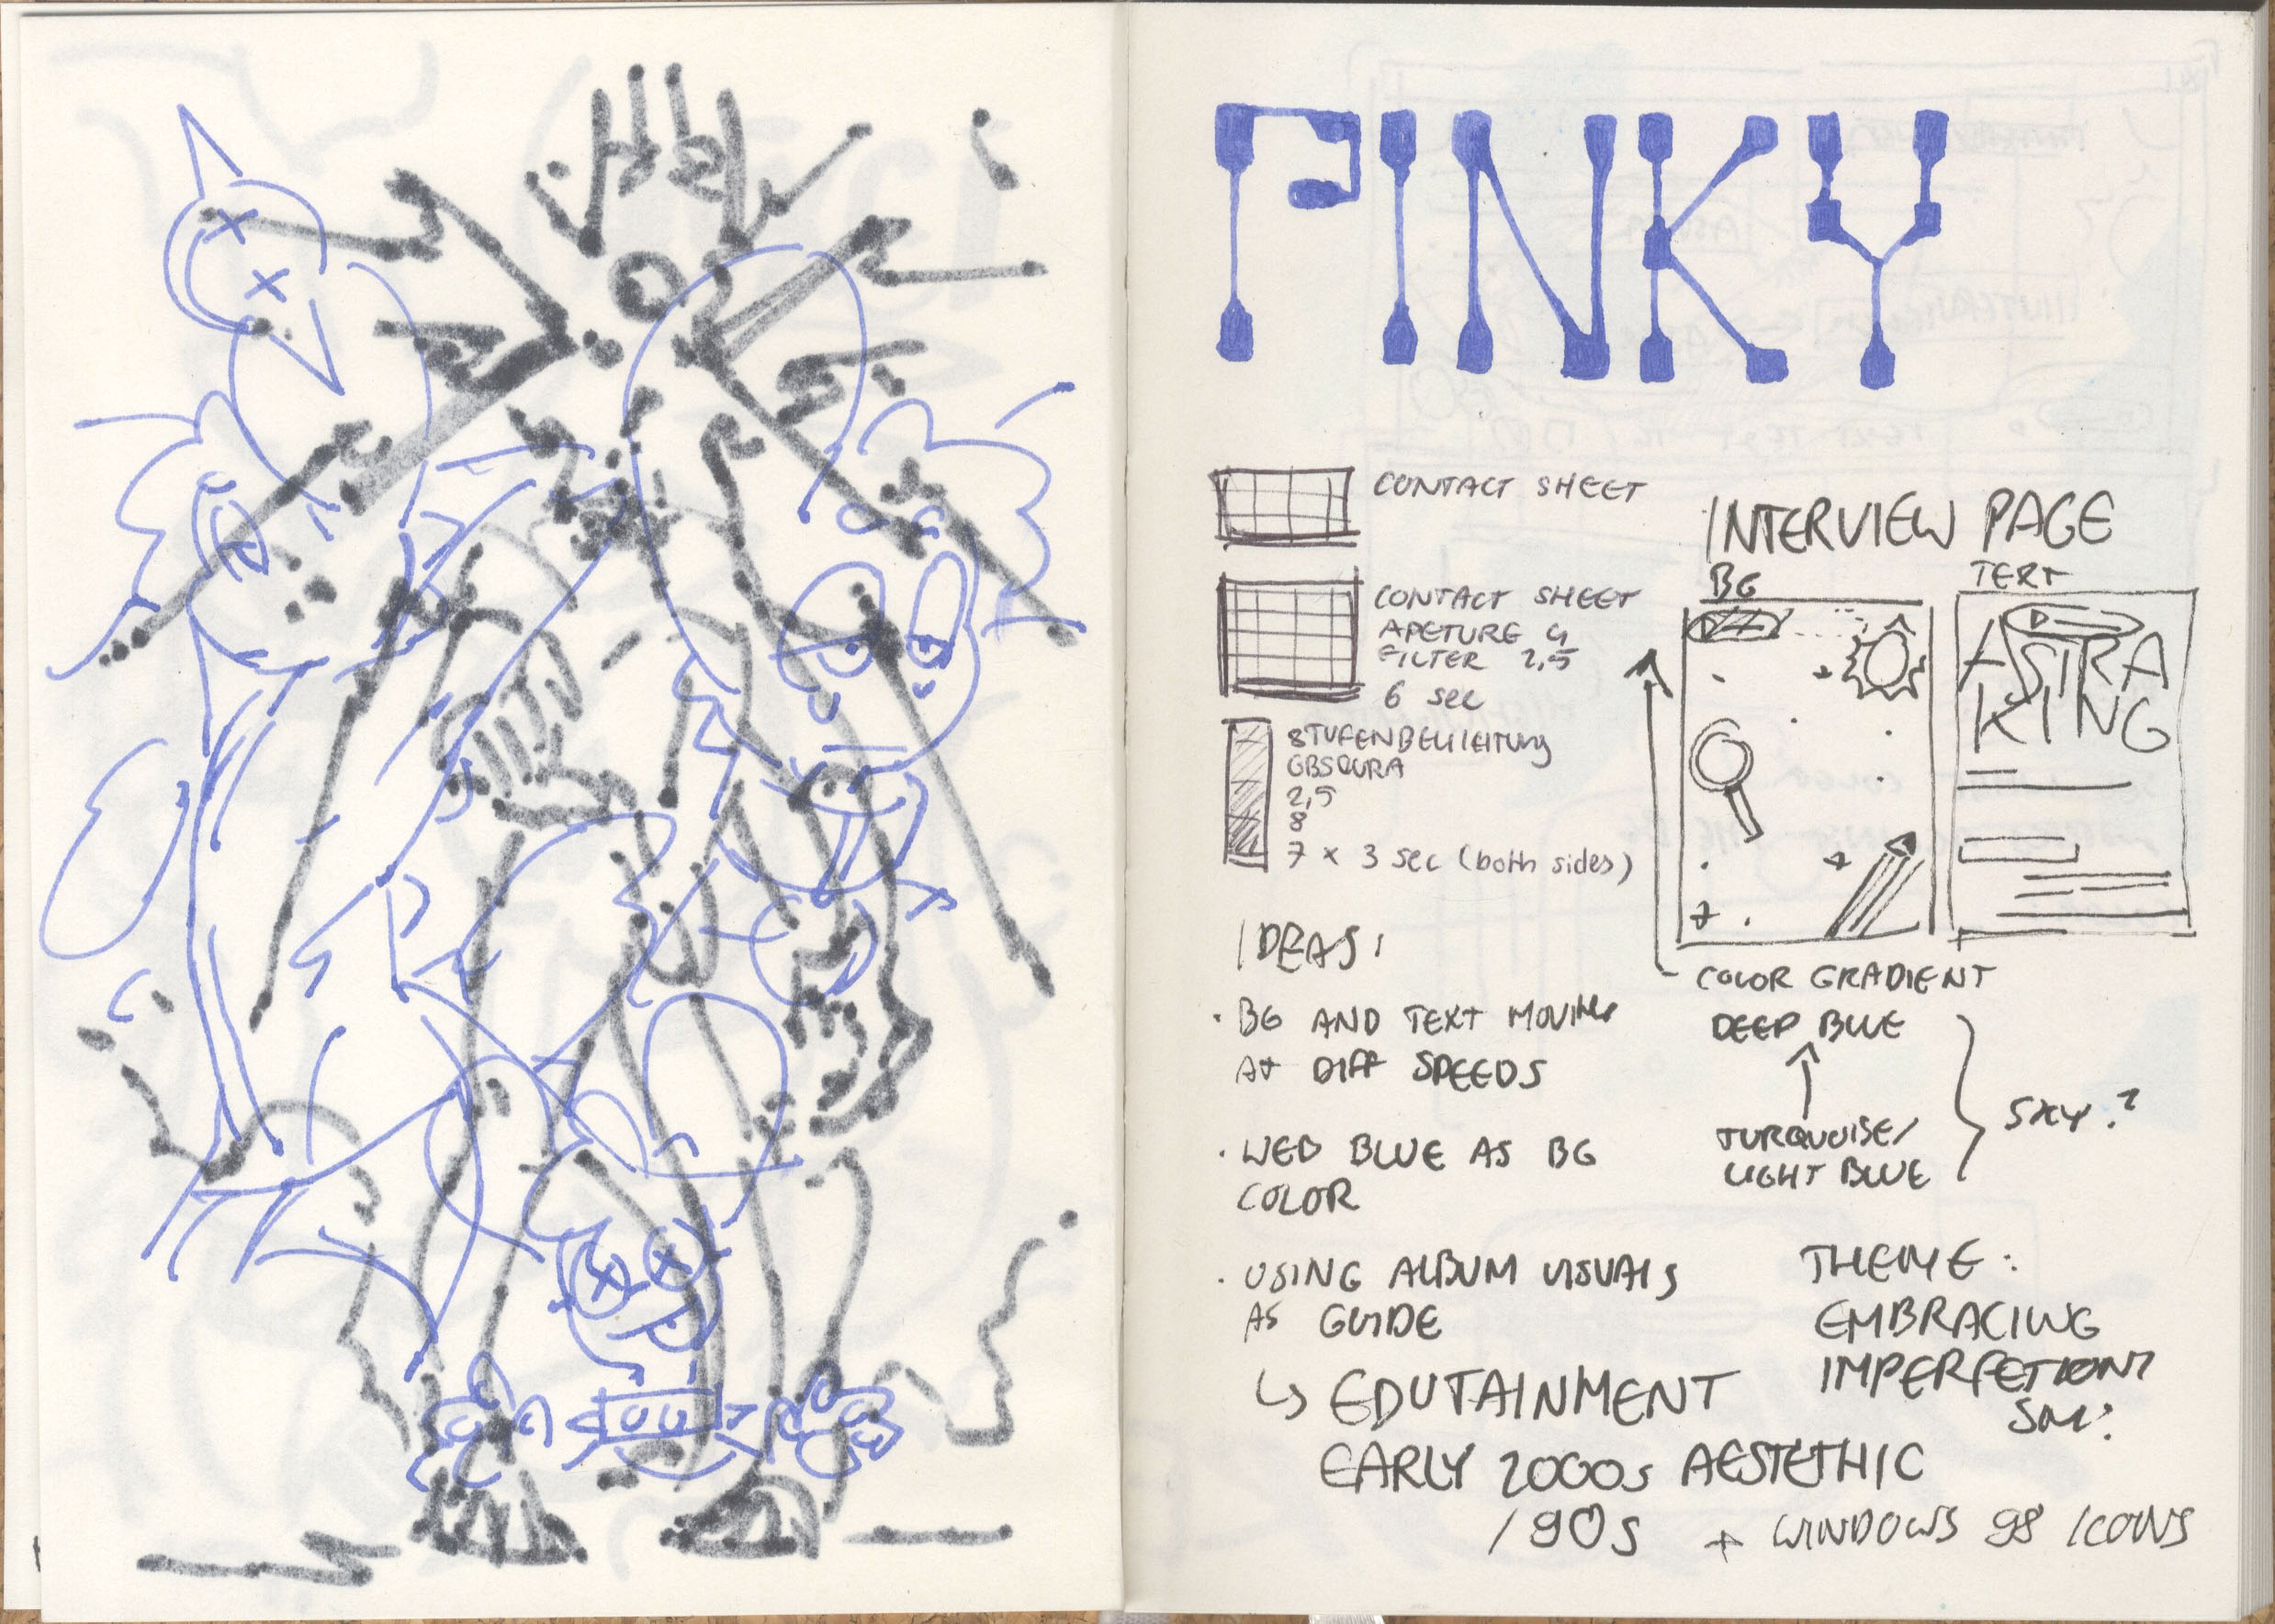 PINKY
CONTACT SHEET
CONTACT SHEET
APETURE 4
FILTER 2,5
6 sec
OBSCURA
2,5
8
7 x 3 sec (both sides)
INTERVIEW PAGE
BG
TEXT
ASTRA
KING
COLOR GRADIENT
DEEP BLUE
TURQUOISE/
LIGHT BLUE
SKY?
IDEAS:
· BG AND TEXT MOVING
AT DIFF SPEEDS
· WEB BLUE AS BG
COLOR
· USING ALBUM VISUALS
AS GUIDE
↳ EDUTAINMENT
EARLY 2000s AESTETHIC
/90s + WINDOWS 98 ICONS
THEME:
EMBRACING